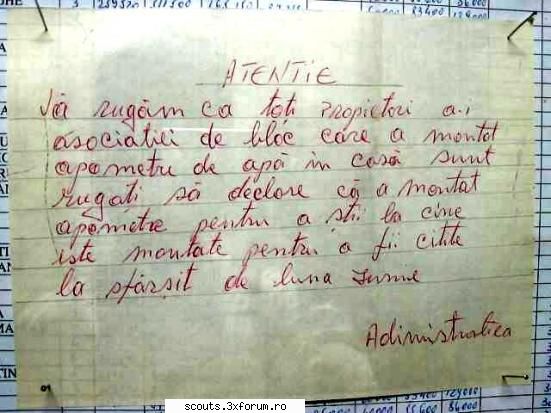 ATENTIE
Vă rugăm ca toti Propietori a.i
asociatiei de bloc care a montat
apometre de apă in casă sunt
rugati să declare că a montat
apometre pentru a stii la cine
iste montate pentru a fii citite
la sfărsit de luna Iunie
Adimistratiea
01
scouts.3xforum.ro